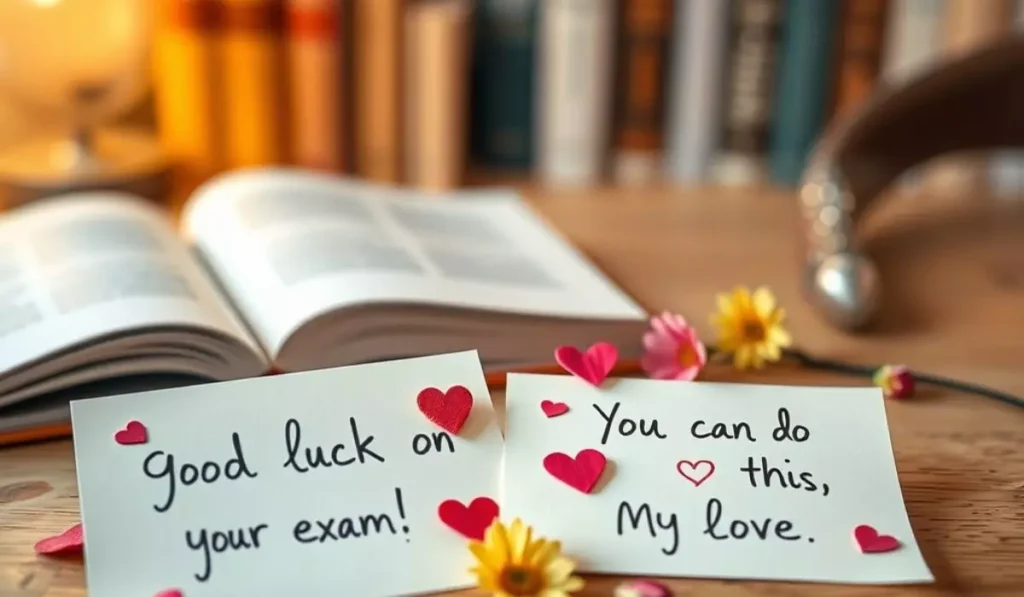 Good luck on
your exam!
You can do
this,
My love.